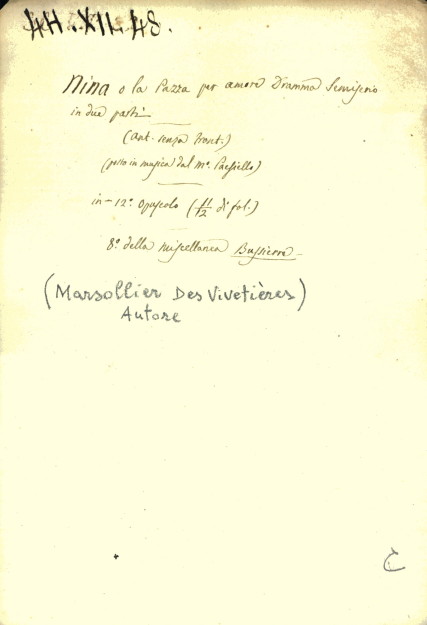 44.XII.48.
Nina o la Pazza per amore Dramma Semiserio
in due parti
(ant. senza front.)
(posto in musica dal mº. Paesiello)
in-12.º opuscolo (11/12 di fol.)
8.º della miscellanea Bussierre
(Marsollier Des Vivetières)
Autore